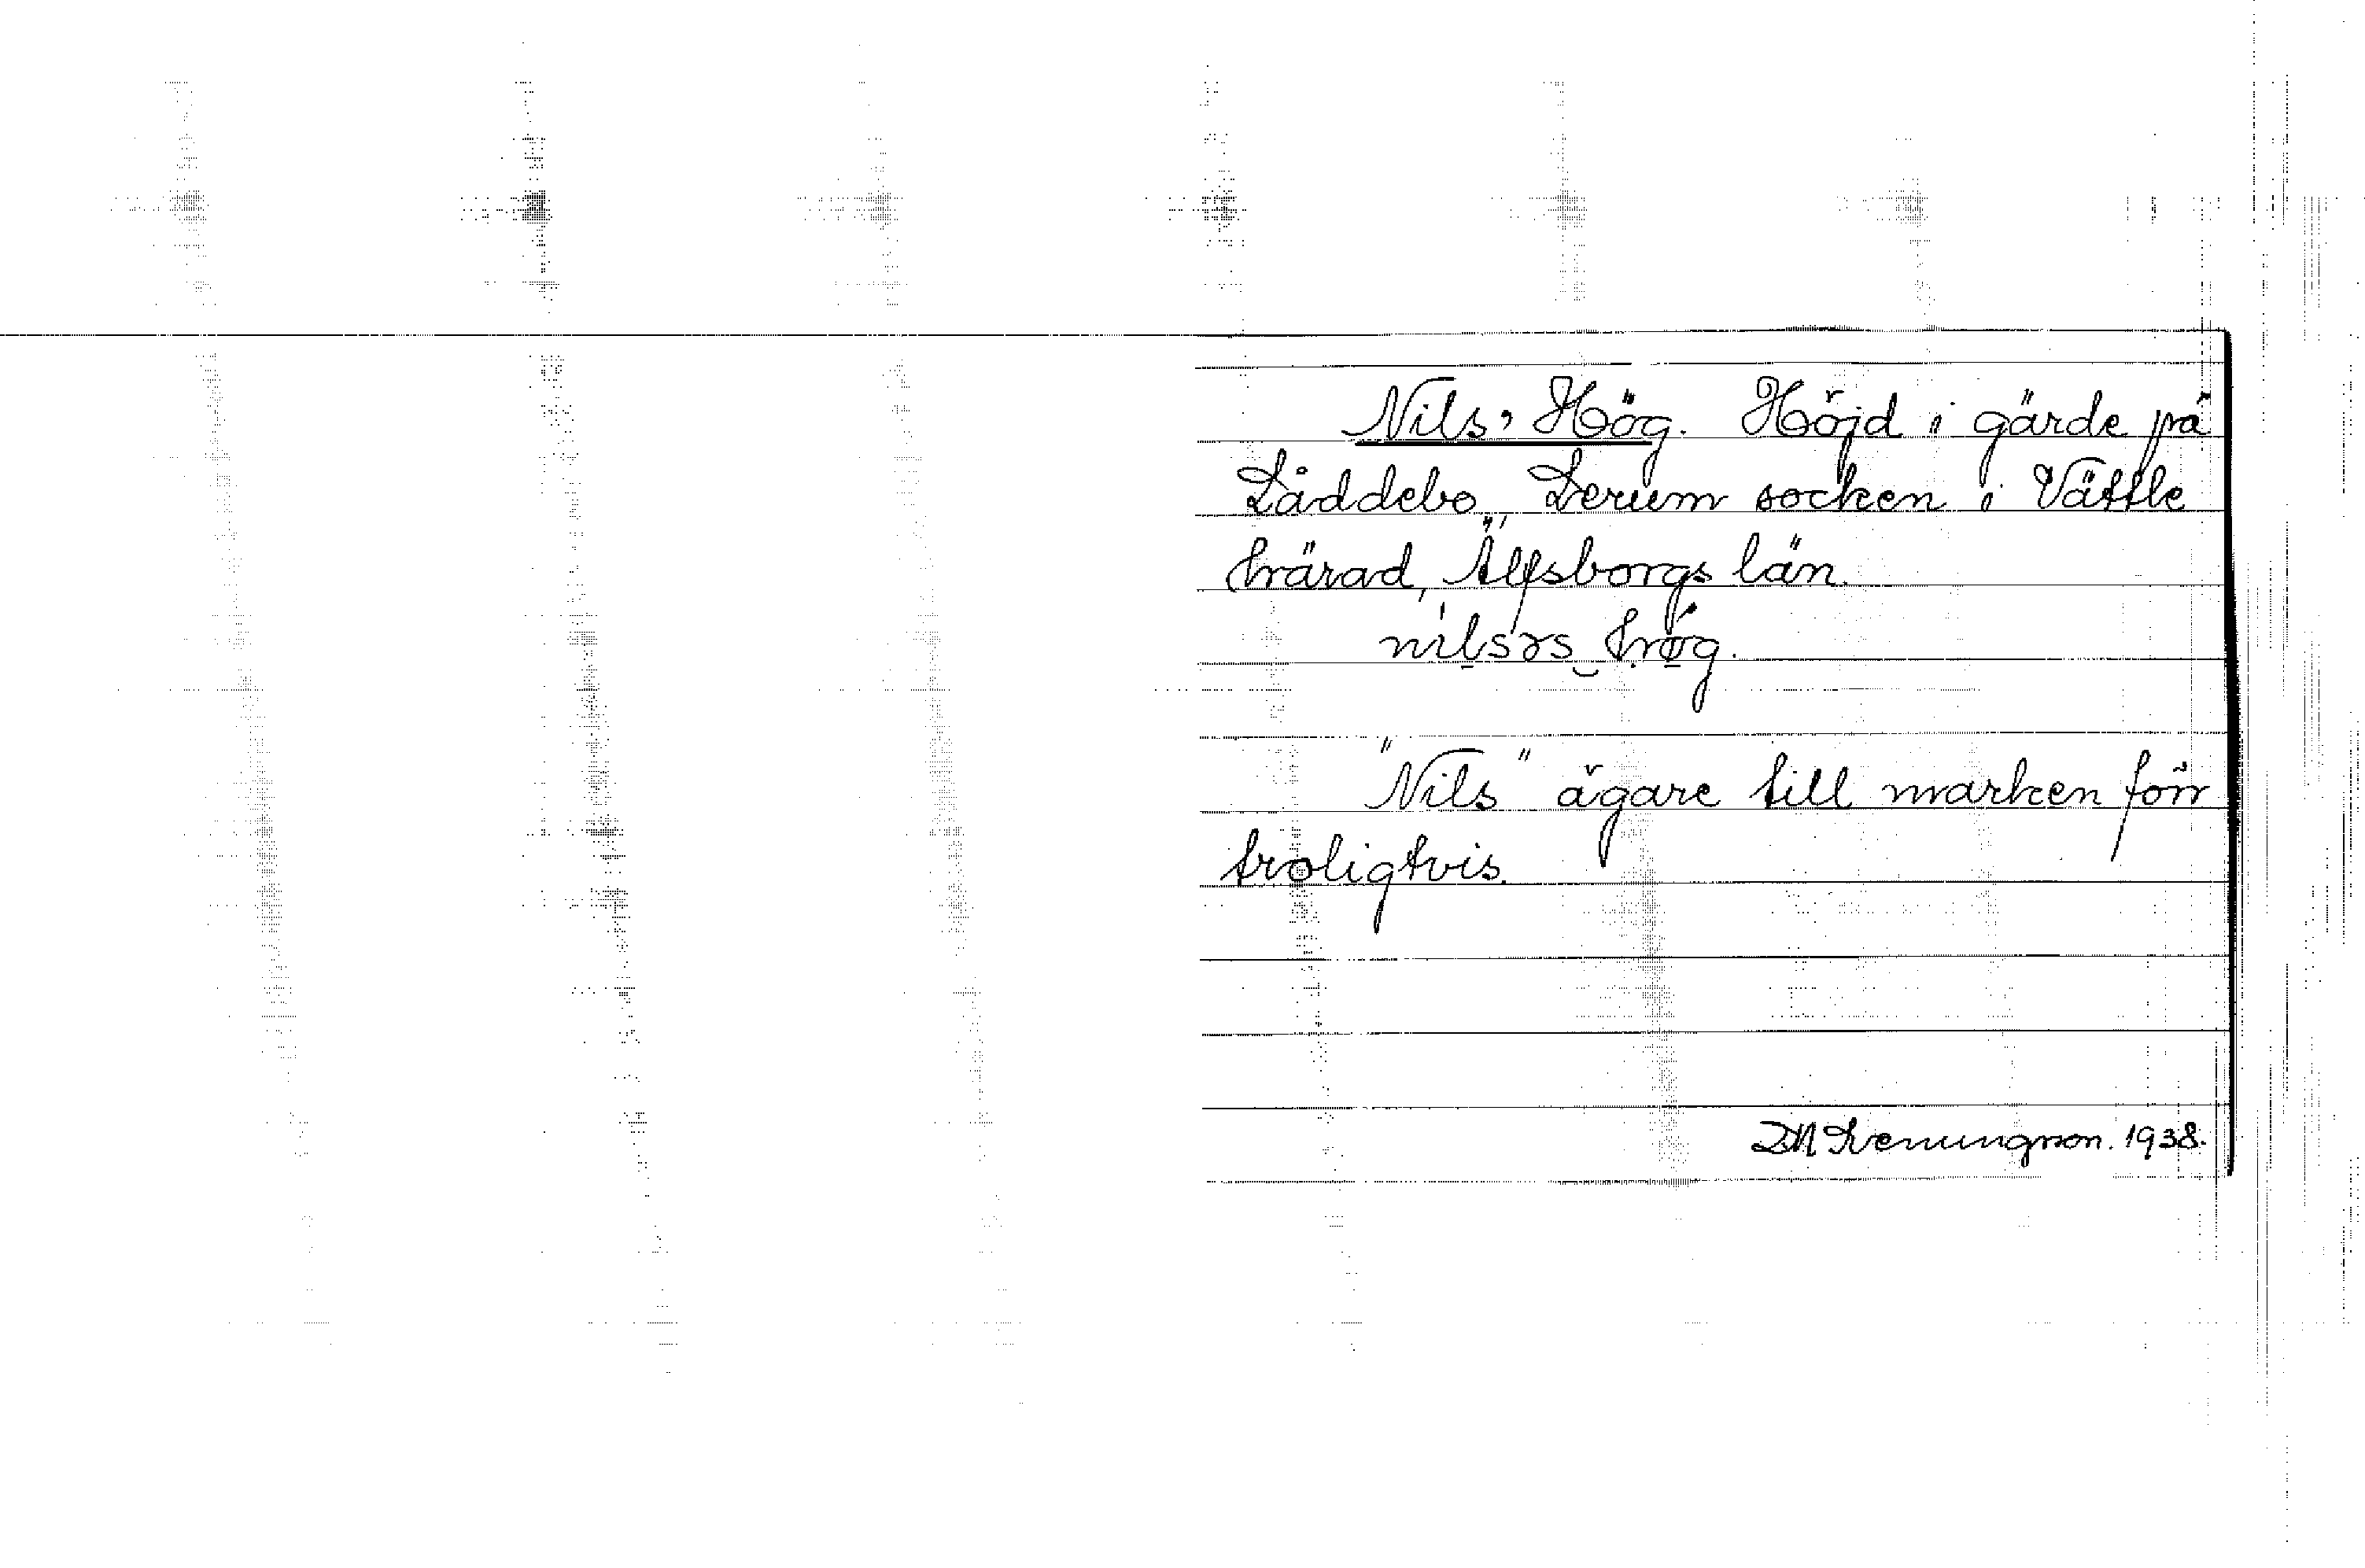 Nils' Hög. Höjd i gärde på
Låddebo, Lerum socken i Vättle
härad, Älfsborgs län.
nilsəs høg.
"Nils" ägare till marken förr
troligtvis.
1938.